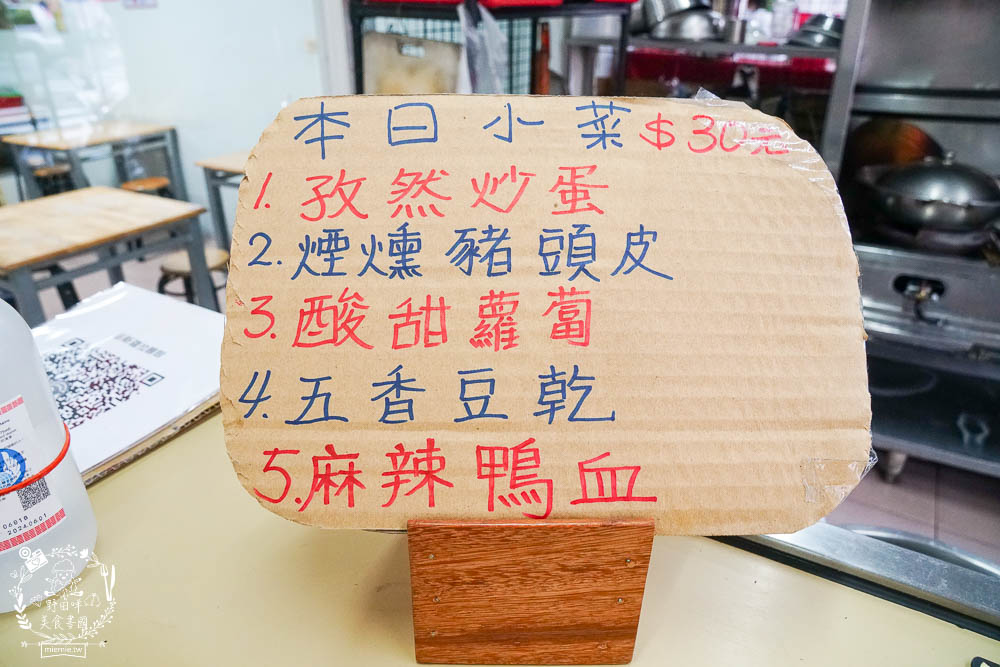 本日小菜 $30元
1. 孜然炒蛋
2. 煙燻豬頭皮
3. 酸甜蘿蔔
4. 五香豆乾
5. 麻辣鴨血
20240601
美食樂園
miernie.tw